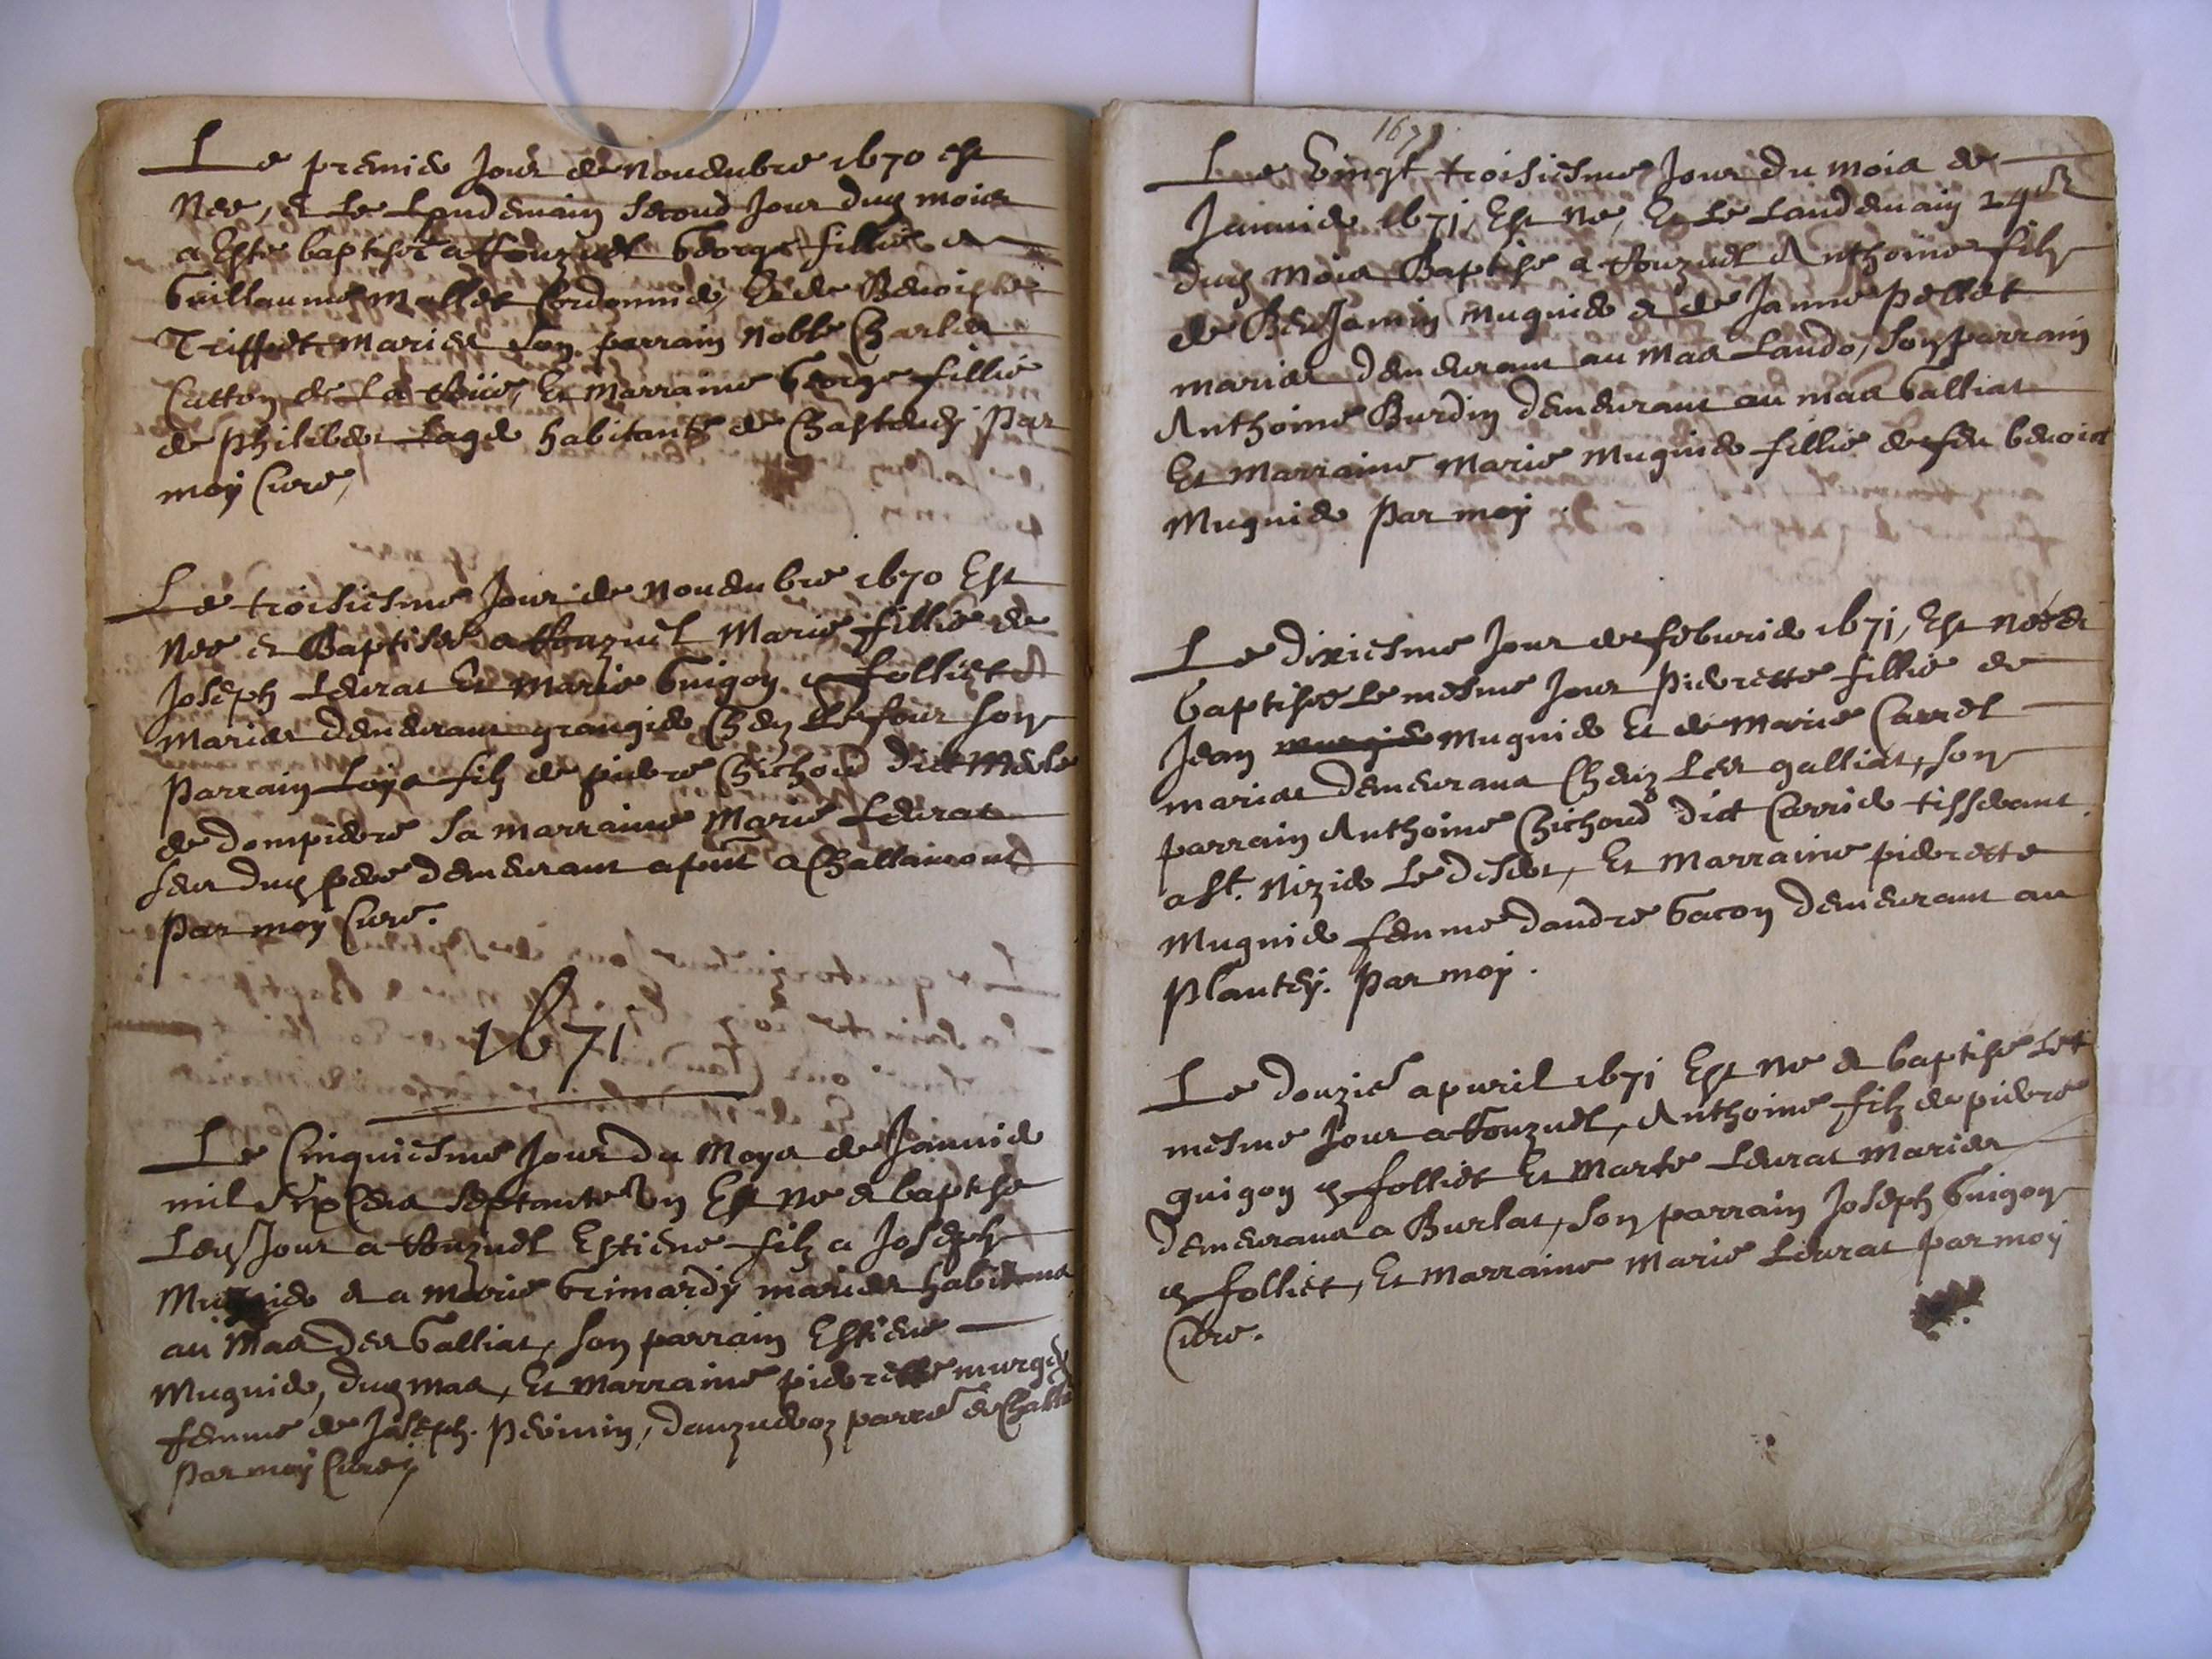 Le premier Jour de Nouembre 1670 est
Nee, et Le Landemain Second Jour dud mois
a Este baptisee a George fillie de
Guillaume Mallet Cordonnier, Et de Benoiste
Triffet Maries Son parrain Noble Charles
Catton de La Et Marraine George fillie
de Philibert habitants de Par
moy Cure,
Le troisiesme Jour de Nouembre 1670 Est
Nee et Baptisee a Marie fillie de
Joseph Leurat Et Marie Guigon folliet
Maries demeurant grangier Chez four son
Parrain Loys filz de pierre Chichoud dict Merle
de dompierre Sa marraine Marie Leurat
seur dud pere demeurant a Challamont
Par moy Cure.
1671
Le Cinquiesme Jour du Moys de Januier
mil Six Cens Septante Vn Est Ne et baptise
Led Jour a Estiene filz a Joseph
Muguier et a Marie Grimardy maries habitans
au Mas des Galliat, son parrain Estiene
Muguier, dud mas, Et Marraine pierrette
femme de Joseph. Peruin, parre de
Par moy Cure
1671
Le Vingt troisiesme Jour du mois de
Januier 1671, Est Ne, Et Le Landemain
dud Mois Baptise a Anthoine filz
de Benjamin Muguier et de Janne Pellet
maries demeurant au Mas Lando, Son parrain
Anthoine Burdin demeurant au mas Galliat
Et Marraine Marie Muguier fillie de feu benoict
Muguier Par moy
Le dixiesme Jour de feburier 1671, Est Nee et
baptisee Le mesme Jour Pierrette fillie de
Jean Muguier Et de Marie Carrel
maries demeurans Cheuz Les galliat, son
parrain Anthoine Chichoud dict Carrie tisserant
a St. Nizier Le desert, Et Marraine pierrette
Muguier femme dandre Gacon demeurant au
Plantey. Par moy.
Le douzie apuril 1671 Est Ne et baptise Le
mesme Jour a Anthoine filz de pierre
guigon folliet Et Marte Leurat Maries
demeurans a Burlat, Son parrain Joseph Guigon
folliet, Et Marraine Marie Leurat par moy
Cure.